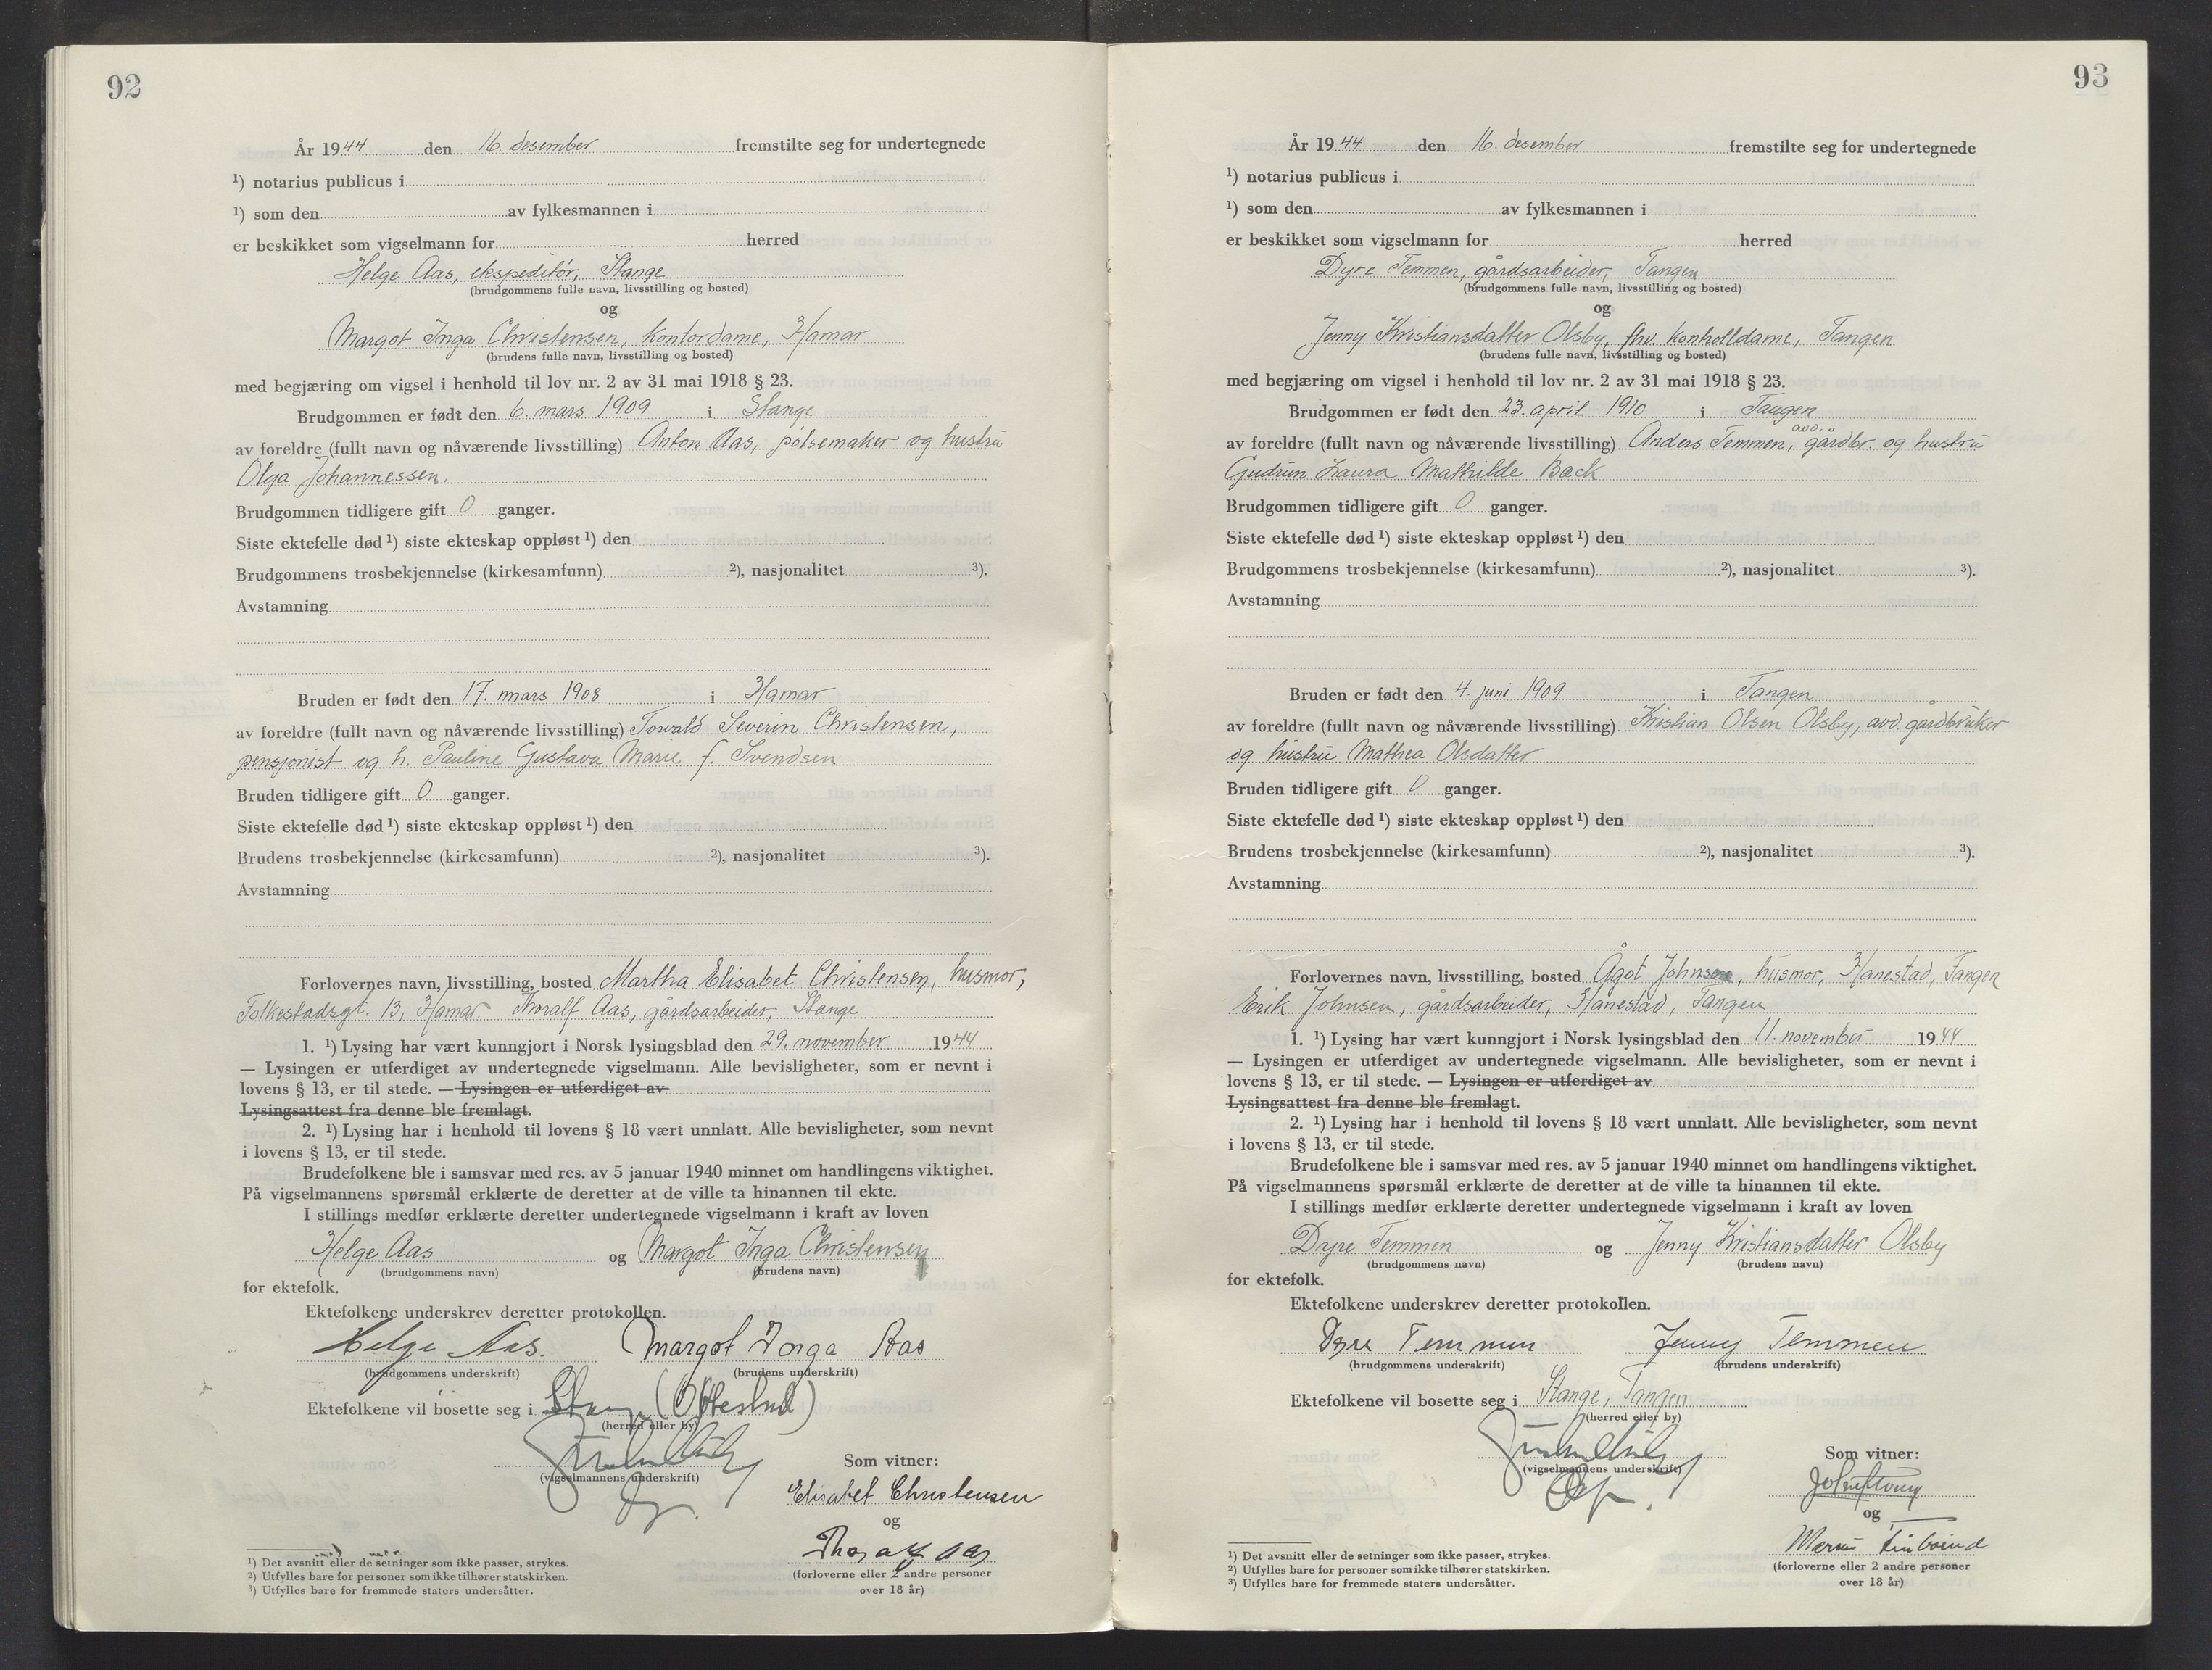 92
År 1944 den 16. desember fremstilte seg for undertegnede
¹) notarius publicus i
¹) som den av fylkesmannen i
er beskikket som vigselmann for herred
Helge Aas, ekspeditör, Stange
(brudgommens fulle navn, livsstilling og bosted)
og
Margot Inga Christensen, kontordame, Hamar
(brudens fulle navn, livsstilling og bosted)
med begjæring om vigsel i henhold til lov nr. 2 av 31 mai 1918 § 23.
Brudgommen er født den 6. mars 1909 i Stange
av foreldre (fullt navn og nåværende livsstilling) Anton Aas, pölsemaker og hustru
Olga Johannessen.
Brudgommen tidligere gift 0 ganger.
Siste ektefelle død ¹) siste ekteskap oppløst ¹) den
Brudgommens trosbekjennelse (kirkesamfunn) ²), nasjonalitet ³).
Avstamning
Bruden er født den 17. mars 1908 i Hamar
av foreldre (fullt navn og nåværende livsstilling) Torvald Severin Christensen,
pensjonist og h. Pauline Gustava Marie f. Svendsen
Bruden tidligere gift 0 ganger.
Siste ektefelle død ¹) siste ekteskap oppløst ¹) den
Brudens trosbekjennelse (kirkesamfunn) ²), nasjonalitet ³).
Avstamning
Forlovernes navn, livsstilling, bosted Martha Elisabet Christensen, husmor,
Folkestadsgt. 13, Hamar. Thoralf Aas, gårdsarbeider, Stange
1. ¹) Lysing har vært kunngjort i Norsk lysingsblad den 29. november 1944
— Lysingen er utferdiget av undertegnede vigselmann. Alle bevisligheter, som er nevnt i
lovens § 13, er til stede. — Lysingen er utferdiget av
Lysingsattest fra denne ble fremlagt.
2. ¹) Lysing har i henhold til lovens § 18 vært unnlatt. Alle bevisligheter, som nevnt
i lovens § 13, er til stede.
Brudefolkene ble i samsvar med res. av 5 januar 1940 minnet om handlingens viktighet.
På vigselmannens spørsmål erklærte de deretter at de ville ta hinannen til ekte.
I stillings medfør erklærte deretter undertegnede vigselmann i kraft av loven
Helge Aas og Margot Inga Christensen
(brudgommens navn) (brudens navn)
for ektefolk.
Ektefolkene underskrev deretter protokollen.
Helge Aas. Margot Inga Aas
(brudgommens underskrift) (brudens underskrift)
Ektefolkene vil bosette seg i Stange (Ottestad)
(herred eller by)
(vigselmannens underskrift)
Som vitner:
Elisabet Christensen
og
Thoralf Aas
(forloverne eller 2 andre personer
over 18 år)
¹) Det avsnitt eller de setninger som ikke passer, strykes.
²) Utfylles bare for personer som ikke tilhører statskirken.
³) Utfylles bare for fremmede staters undersåtter.
93
År 1944 den 16. desember fremstilte seg for undertegnede
¹) notarius publicus i
¹) som den av fylkesmannen i
er beskikket som vigselmann for herred
Dyre Temmen, gårdsarbeider, Tangen
(brudgommens fulle navn, livsstilling og bosted)
og
Jenny Kristiansdatter Olsby, fhv. kontrolldame, Tangen
(brudens fulle navn, livsstilling og bosted)
med begjæring om vigsel i henhold til lov nr. 2 av 31 mai 1918 § 23.
Brudgommen er født den 23. april 1910 i Tangen
av foreldre (fullt navn og nåværende livsstilling) Anders Temmen, avd. gårdbr. og hustru
Gudrun Laura Mathilde Back
Brudgommen tidligere gift 0 ganger.
Siste ektefelle død ¹) siste ekteskap oppløst ¹) den
Brudgommens trosbekjennelse (kirkesamfunn) ²), nasjonalitet ³).
Avstamning
Bruden er født den 4. juni 1909 i Tangen
av foreldre (fullt navn og nåværende livsstilling) Kristian Olsen Olsby, avd. gårdbruker
og hustru Mathea Olsdatter
Bruden tidligere gift 0 ganger.
Siste ektefelle død ¹) siste ekteskap oppløst ¹) den
Brudens trosbekjennelse (kirkesamfunn) ²), nasjonalitet ³).
Avstamning
Forlovernes navn, livsstilling, bosted Ågot Johnsen, husmor, Hanestad, Tangen
Erik Johnsen, gårdsarbeider, Hanestad, Tangen
1. ¹) Lysing har vært kunngjort i Norsk lysingsblad den 11. november 1944
— Lysingen er utferdiget av undertegnede vigselmann. Alle bevisligheter, som er nevnt i
lovens § 13, er til stede. — Lysingen er utferdiget av
Lysingsattest fra denne ble fremlagt.
2. ¹) Lysing har i henhold til lovens § 18 vært unnlatt. Alle bevisligheter, som nevnt
i lovens § 13, er til stede.
Brudefolkene ble i samsvar med res. av 5 januar 1940 minnet om handlingens viktighet.
På vigselmannens spørsmål erklærte de deretter at de ville ta hinannen til ekte.
I stillings medfør erklærte deretter undertegnede vigselmann i kraft av loven
Dyre Temmen og Jenny Kristiansdatter Olsby
(brudgommens navn) (brudens navn)
for ektefolk.
Ektefolkene underskrev deretter protokollen.
Dyre Temmen Jenny Temmen
(brudgommens underskrift) (brudens underskrift)
Ektefolkene vil bosette seg i Stange, Tangen
(herred eller by)
(vigselmannens underskrift)
Som vitner:
og
(forloverne eller 2 andre personer
over 18 år)
¹) Det avsnitt eller de setninger som ikke passer, strykes.
²) Utfylles bare for personer som ikke tilhører statskirken.
³) Utfylles bare for fremmede staters undersåtter.